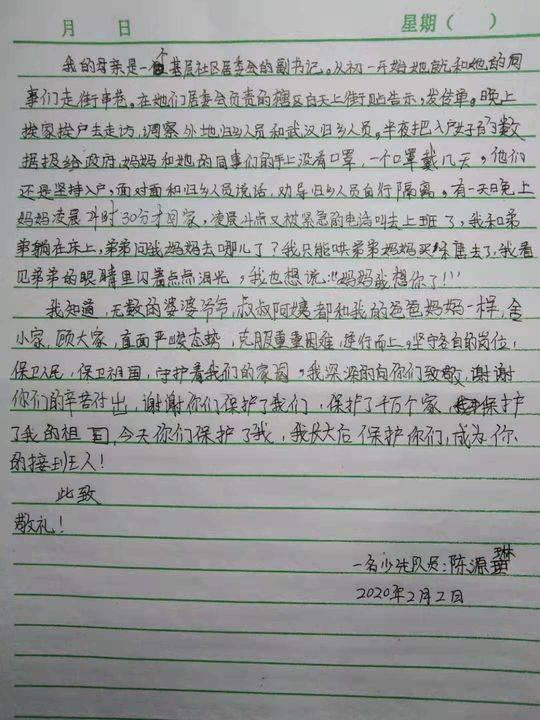 月 日 星期（ ）
我的母亲是一个基层社区居委会的副书记。从初一开始她就和她的同
事们走街串巷。在她们居委会负责的辖区白天上街贴告示，发传单。晚上
挨家挨户去走访，调察外地归乡人员和武汉归乡人员。半夜把入户来的数
据报给政府，妈妈和她的同事们的手上没有口罩，一个口罩戴几天，他们
还是坚持入户，面对面和归乡人员说话，劝导归乡人员自行隔离。有一天晚上
妈妈凌晨2时30分才回家，凌晨4点又被紧急的电话叫去上班了，我和弟
弟躺在床上，弟弟问我妈妈去哪儿了？我只能哄弟弟妈妈买东西去了，我看
见弟弟的眼睛里闪着点点泪光，我也想说：“妈妈我想你了！”
我知道，无数的婆婆爷爷，叔叔阿姨都和我的爸爸妈妈一样，舍
小家，顾大家，直面严峻态势，克服重重困难，逆行而上。坚守各自的岗位，
保卫人民，保卫祖国，守护着我们的家园，我深深的向你们致敬，谢谢
你们的辛苦付出，谢谢你们保护了我们，保护了千万个家，保护
了我的祖国，今天你们保护了我，我长大后保护你们，成为你
的接班人！
此致
敬礼！
一名少先队员：陈源琳
2020年2月2日